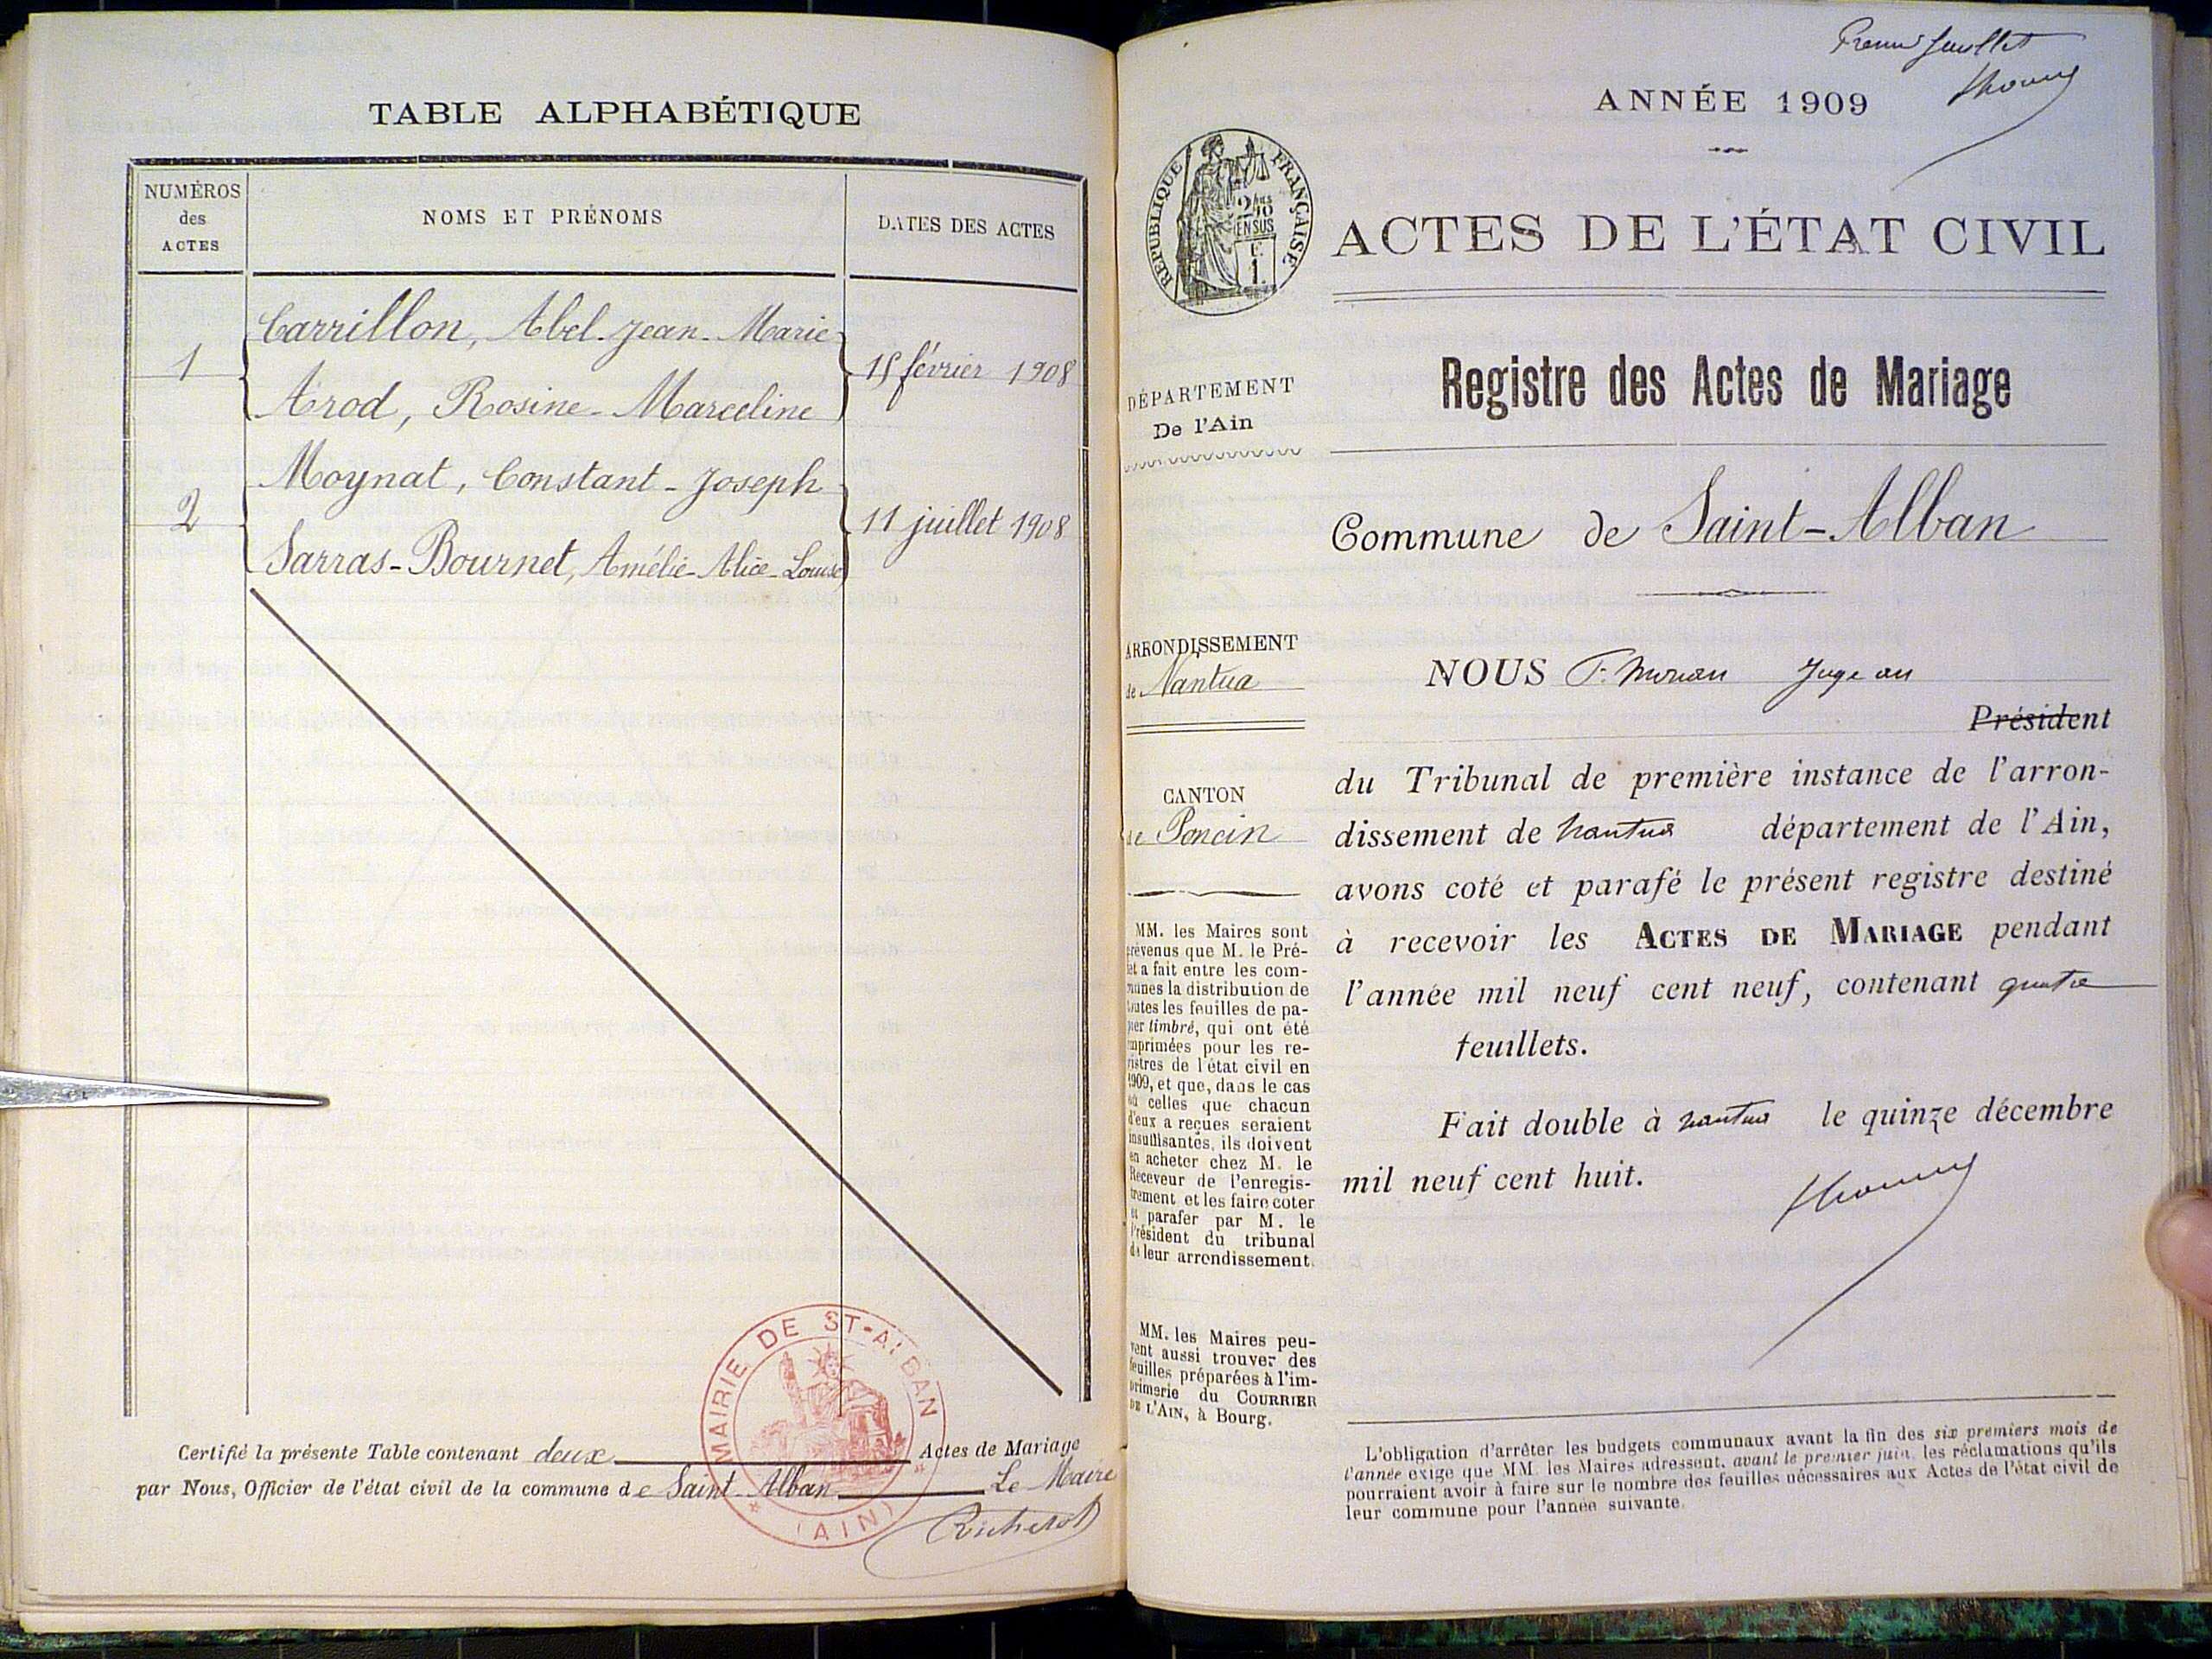 TABLE ALPHABÉTIQUE
NUMÉROS
des
ACTES
NOMS ET PRÉNOMS
DATES DES ACTES
Carrillon, Abel-Jean-Marie
1
15 février 1908
Arod, Rosine-Marceline
Moynat, Constant-Joseph
2
11 juillet 1908
Sarras-Bournet, Amélie-Alice-Louise
Certifié la présente Table contenant deux Actes de Mariage
par Nous, Officier de l'état civil de la commune de Saint-Alban Le Maire
MAIRIE DE ST-ALBAN
(AIN)
Premier feuillet
ANNÉE 1909
RÉPUBLIQUE FRANÇAISE
ACTES DE L'ÉTAT CIVIL
Registre des Actes de Mariage
DÉPARTEMENT
De l'Ain
Commune de Saint-Alban
ARRONDISSEMENT
de Nantua
NOUS Juge au
Président
CANTON
de Poncin
du Tribunal de première instance de l'arron-
dissement de Nantua département de l'Ain,
avons coté et parafé le présent registre destiné
à recevoir les ACTES DE MARIAGE pendant
l'année mil neuf cent neuf, contenant quatre
feuillets.
Fait double à Nantua le quinze décembre
mil neuf cent huit.
MM. les Maires sont
prévenus que M. le Pré-
fet a fait entre les com-
munes la distribution de
toutes les feuilles de pa-
pier timbré, qui ont été
imprimées pour les re-
gistres de l'état civil en
1909, et que, dans le cas
où celles que chacun
d'eux a reçues seraient
insuffisantes, ils doivent
en acheter chez M. le
Receveur de l'enregis-
trement et les faire coter
et parafer par M. le
Président du tribunal
de leur arrondissement.
MM. les Maires peu-
vent aussi trouver des
feuilles préparées à l'im-
primerie du COURRIER
DE L'AIN, à Bourg.
L'obligation d'arrêter les budgets communaux avant la fin des six premiers mois de
l'année exige que MM. les Maires adressent, avant le premier juin, les réclamations qu'ils
pourraient avoir à faire sur le nombre des feuilles nécessaires aux Actes de l'état civil de
leur commune pour l'année suivante.